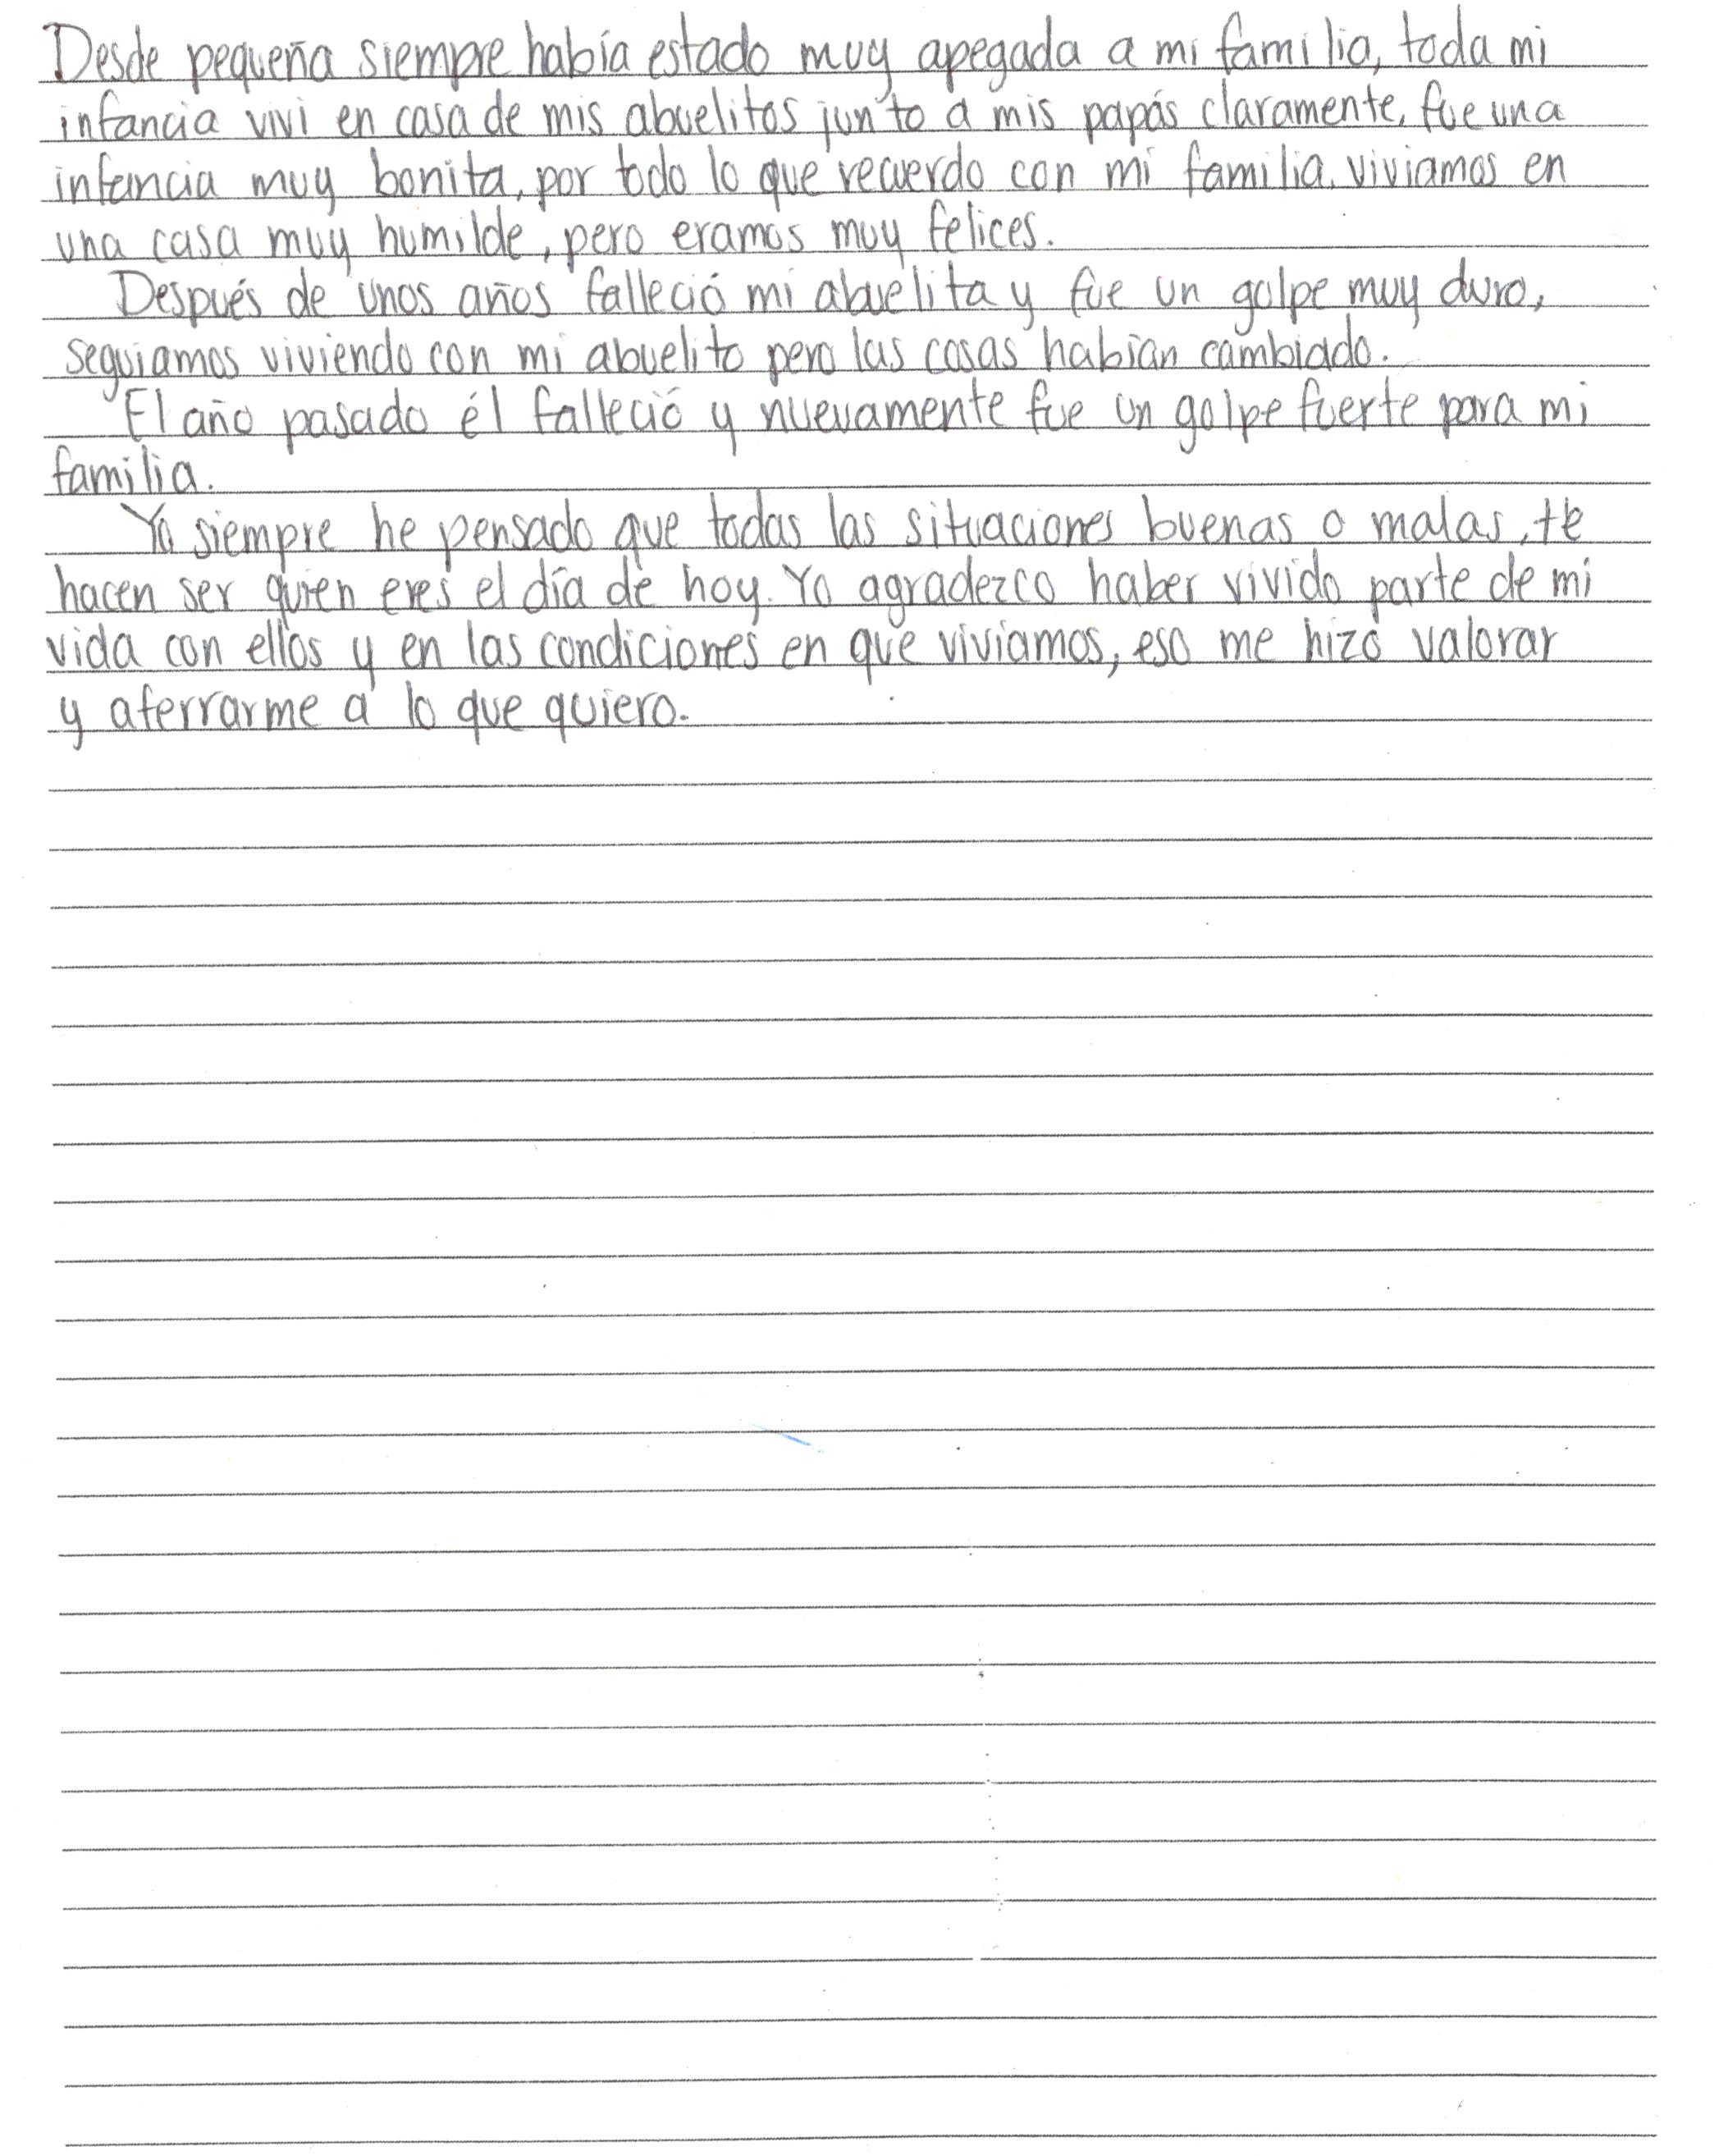 Desde pequeña siempre había estado muy apegada a mi familia, toda mi
infancia vivi en casa de mis abuelitos junto a mis papás claramente, fue una
infancia muy bonita, por todo lo que recuerdo con mi familia. viviamos en
una casa muy humilde, pero eramos muy felices.
Después de unos años falleció mi abuelita y fue un golpe muy duro,
seguiamos viviendo con mi abuelito pero las cosas habían cambiado.
El año pasado él falleció y nuevamente fue un golpe fuerte para mi
familia.
Yo siempre he pensado que todas las situaciones buenas o malas, te
hacen ser quien eres el día de hoy. Yo agradezco haber vivido parte de mi
vida con ellos y en las condiciones en que viviamos, eso me hizo valorar
y aferrarme a lo que quiero.